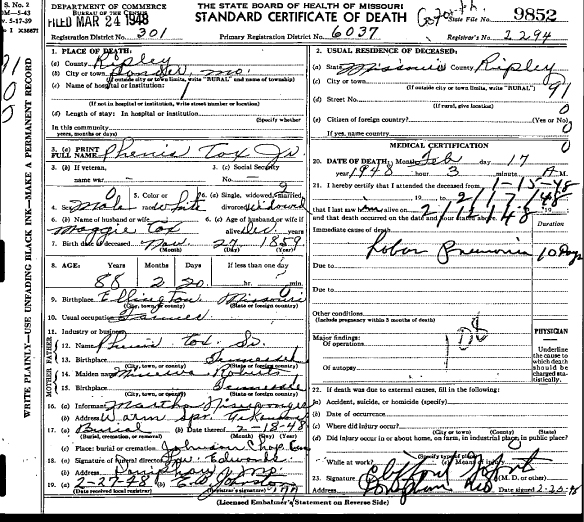 S. No. 2
DEPARTMENT OF COMMERCE
BUREAU OF THE CENSUS
FILED MAR 24 1948
THE STATE BOARD OF HEALTH OF MISSOURI
STANDARD CERTIFICATE OF DEATH
State File No. 9852
Registration District No. 301
Primary Registration District No. 6037
Registrar's No. 2294
WRITE PLAINLY—USE UNFADING BLACK INK—MAKE A PERMANENT RECORD
1. PLACE OF DEATH:
(a) County Ripley
(b) City or town Ponder, Mo.
(If outside city or town limits, write "RURAL" and name of township)
(c) Name of hospital or institution:
(If not in hospital or institution, write street number or location)
(d) Length of stay: In hospital or institution
(Specify whether
In this community
years, months or days)
3. (a) PRINT FULL NAME Phenis Tox Jr.
3. (b) If veteran, name war —
3. (c) Social Security No. —
4. Sex Male
5. Color or race White
6. (a) Single, widowed, married, divorced Widowed
6. (b) Name of husband or wife Maggie Tox
6. (c) Age of husband or wife if alive Dec. years
7. Birth date of deceased Nov 27 1859
(Month) (Day) (Year)
8. AGE: Years Months Days If less than one day
88 2 20 hr. min.
9. Birthplace Ellington Missouri
(City, town, or county) (State or foreign country)
10. Usual occupation Farmer
11. Industry or business
FATHER
12. Name Phenis Tox Sr.
13. Birthplace Tennessee
(City, town, or county) (State or foreign country)
MOTHER
14. Maiden name Minerva Roberts
15. Birthplace Tennessee
(City, town, or county) (State or foreign country)
16. (a) Informant Martha
(b) Address Warm Spr. Arkansas
17. (a) Burial (b) Date thereof 2-18-48
(Burial, cremation, or removal) (Month) (Day) (Year)
(c) Place: burial or cremation Johnson Chap. Cem
18. (a) Signature of funeral director Edwards
(b) Address Doniphan, Mo
19. (a) 2-27-48 (b) E.W. Johnston
(Date received local registrar) (Registrar's signature)
2. USUAL RESIDENCE OF DECEASED:
(a) State Missouri County Ripley
(c) City or town
(If outside city or town limits, write "RURAL")
91
(d) Street No.
(If rural, give location)
(e) Citizen of foreign country? (Yes or No)
If yes, name country
MEDICAL CERTIFICATION
20. DATE OF DEATH: Month Feb day 17
year 1948 hour 3 minute A.M.
21. I hereby certify that I attended the deceased from 1-15-48
19 , to 2/17/48 , 19
that I last saw him alive on 2/17/48 , 19
and that death occurred on the date and hour stated above.
Duration
Immediate cause of death
Lobar Pneumonia 10 Days
Due to
Due to
Other conditions
(Include pregnancy within 3 months of death)
Major findings:
Of operations
Of autopsy
PHYSICIAN
Underline the cause to which death should be charged statistically.
22. If death was due to external causes, fill in the following:
(a) Accident, suicide, or homicide (specify)
(b) Date of occurrence
(c) Where did injury occur?
(City or town) (County) (State)
(d) Did injury occur in or about home, on farm, in industrial place, in public place?
(Specify type of place)
While at work? (e) Means of injury
23. Signature Clifford (M. D. or other)
Address Doniphan Mo Date signed 2-20-48
(Licensed Embalmer's Statement on Reverse Side)